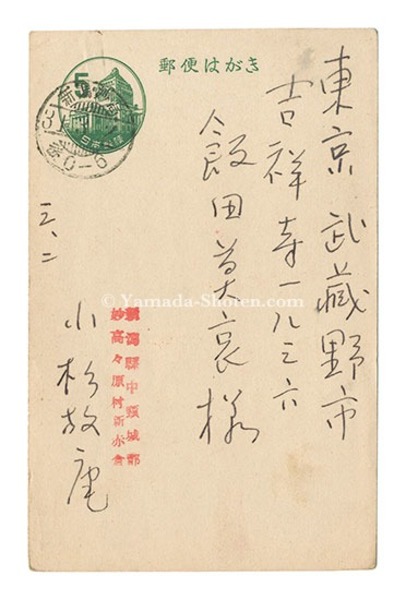 郵便はがき
5
日本郵便
東京 武蔵野市
吉祥寺一八三六
飯田美哀様
© Yamada-Shoten.com
新潟縣中頸城郡
妙高々原村新赤倉
三、二
小杉放庵